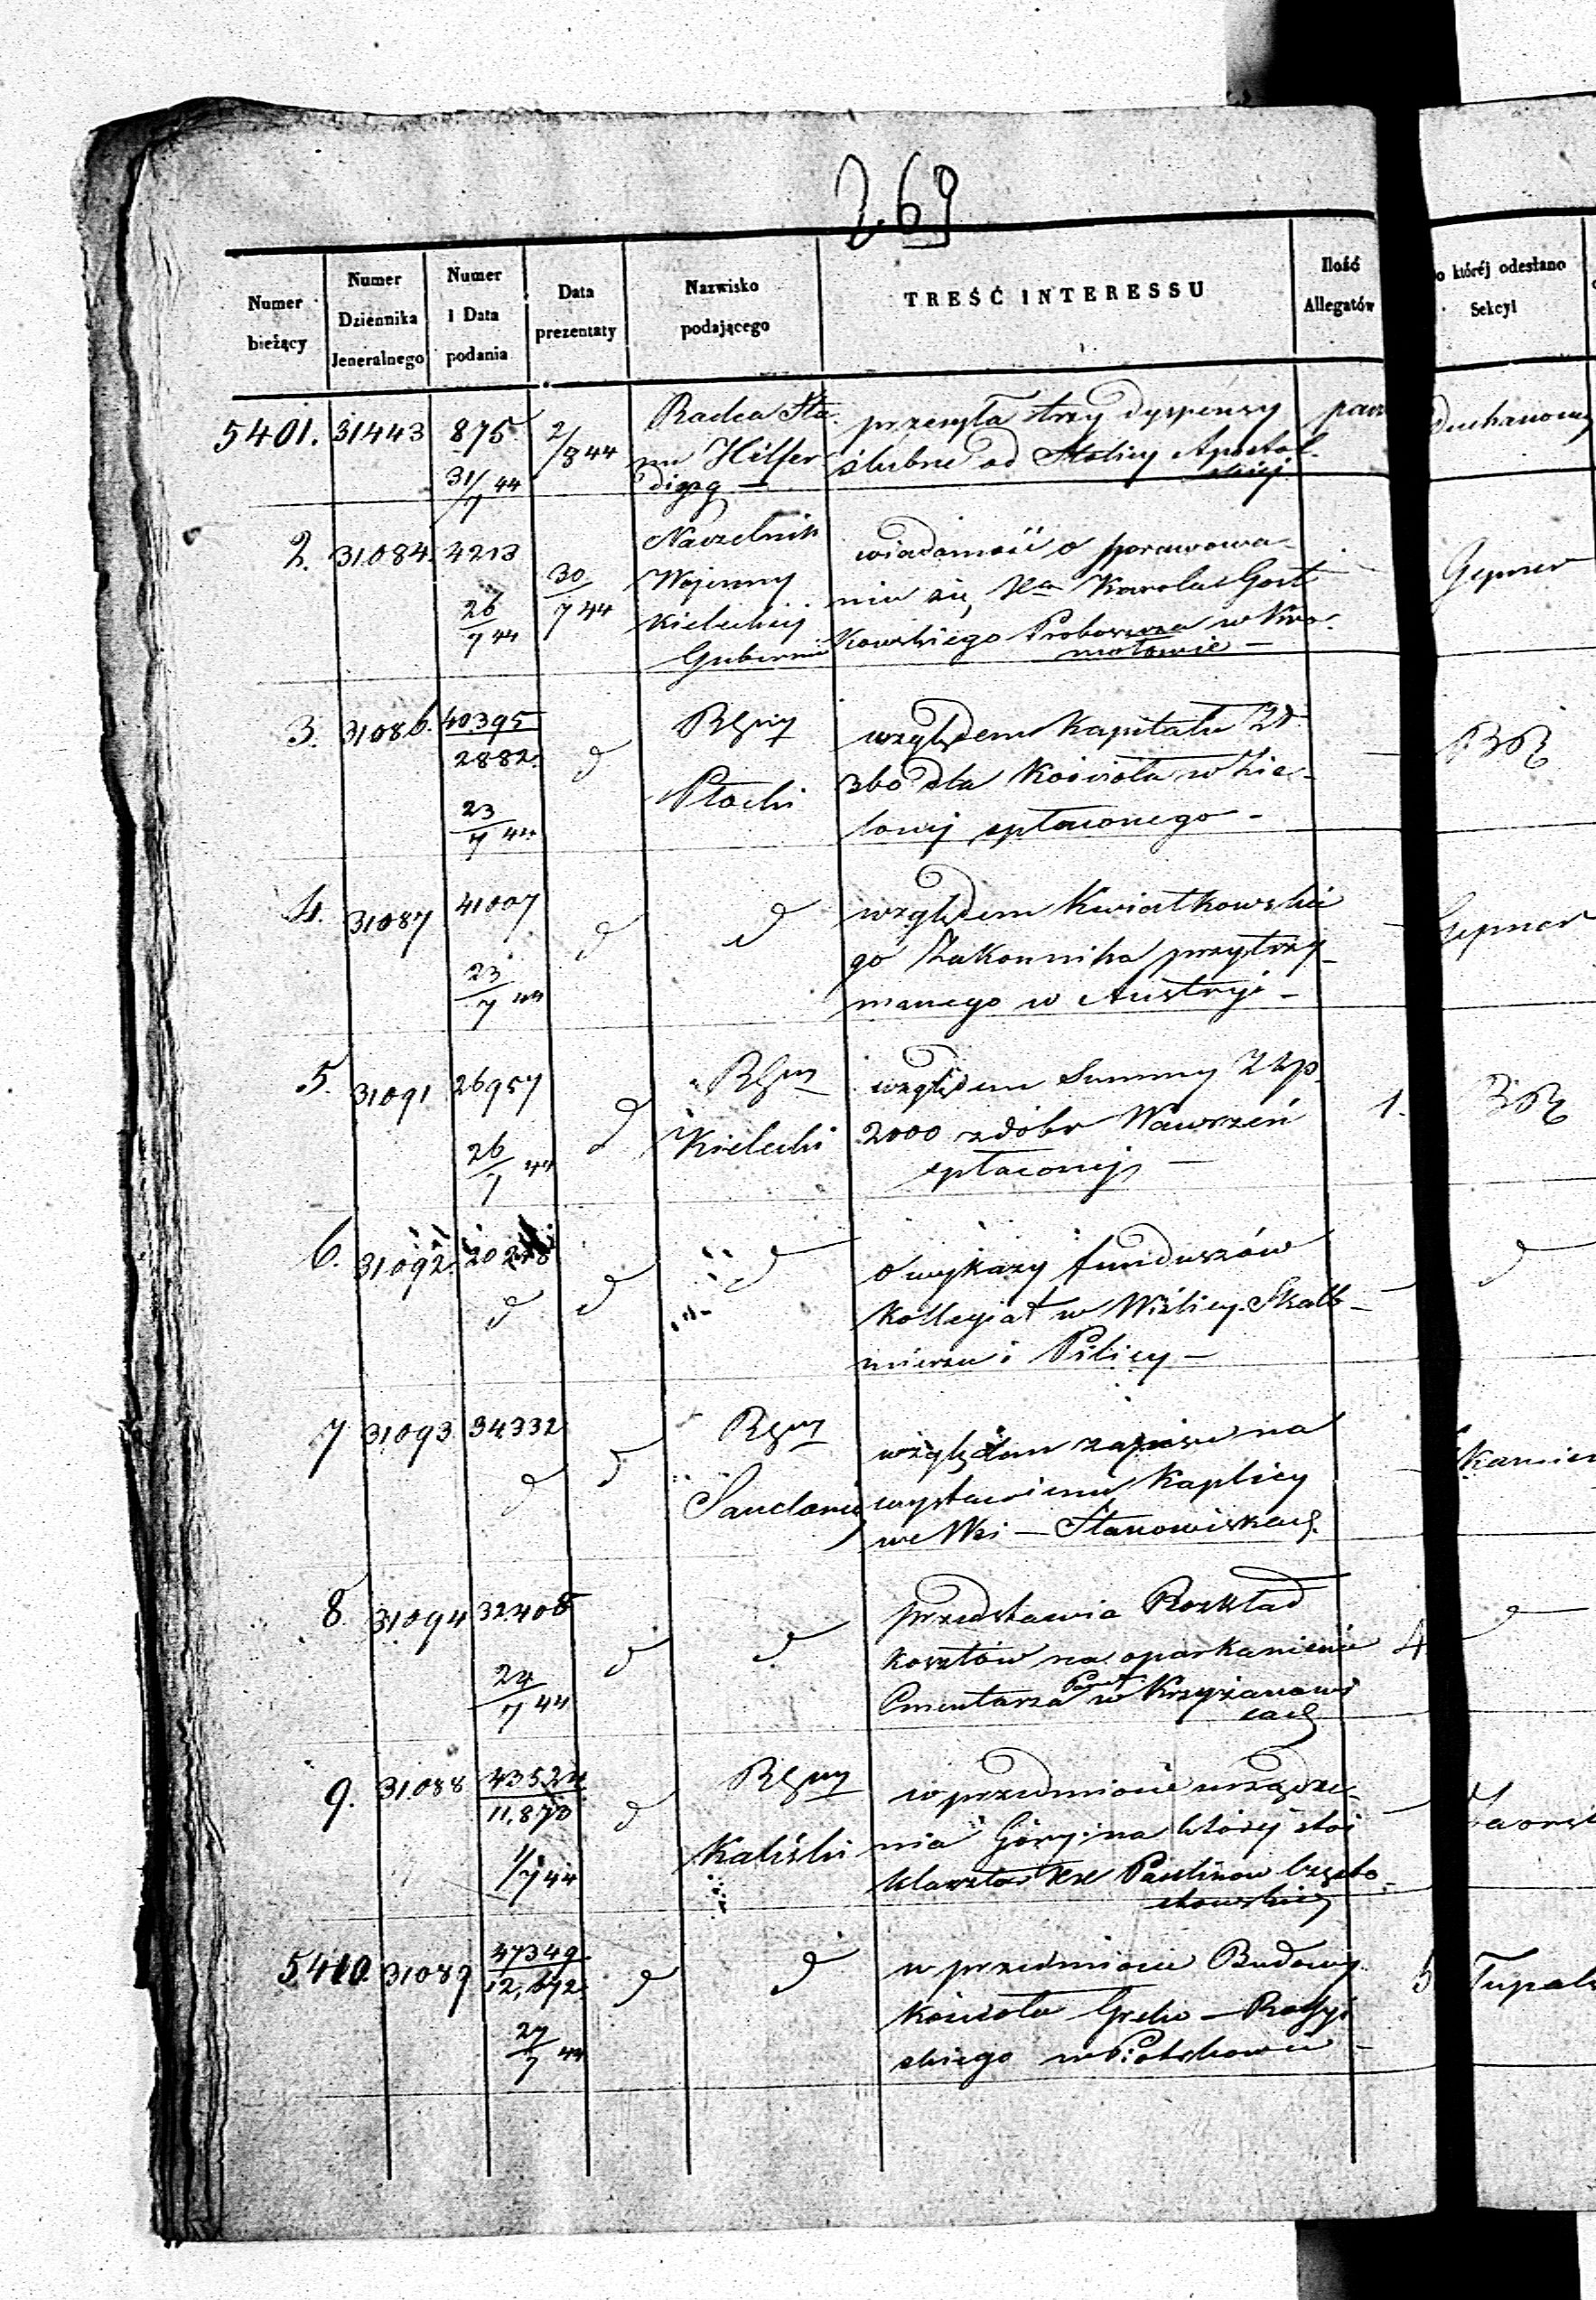 269
Numer bieżący | Numer Dziennika Jeneralnego | Numer i Data podania | Data prezentaty | Nazwisko podającego | TREŚĆ INTERESSU | Ilość Allegatów | o któréj odesłano Sekcyi
5401. 31443 875. 31/7 44 2/8 44 Radca Sta-
nu Hilfer
ding —
przesyła trzy dyspensy
ślubne od Stolicy Apostol-
skiej
Duchanowy
2. 31084. 4213 26/7 44 30/7 44 Naczelnik
Wojenny
Kieleckiej
Gubernii
wiadomość o sprawowa-
niu się, Xa Karola Gost
kowskiego Proboszcza w Kro-
motowie —
Gepner
3. 31086. 40395 2882. 23/7 44 d RGny
Płocki
względem Kapitału Zł.
360 dla Kościoła w Zie-
lonej spłaconego -
4. 31087 41007 23/7 44 d d
względem Kwiatkowskie
go Zakonnika przytrzy-
manego w Austryi -
Gepner
5. 31091 26957 26/7 44 d RGny
Kielecki
względem Summy Złp.
2000 z dóbr Wawrzeń
spłaconej —
1.
6. 31092. 20278 d d d
o wykazy funduszów
Kollegiat w Wiślicy Skalb-
mierzu i Pilicy —
d
7 31093 34332 d d RGny
Sandomi
względem zapisu na
wystawienie Kaplicy
we Wsi — Stanowiskach.
8. 31094 32408 24/7 44 d d
przedstawia Rozkład
kosztów na oparkanienie
Cmentarza Paraf. w Krzyżanowi
cach
4
9. 31088 43524 11,870 1/7 44 d RGny
Kaliski
w przedmiocie urządze-
nia Góry na której stoi
klasztor XX Paulinow Często-
chowskich
5410. 31089 47349 12,672 27/7 44 d d
w przedmiocie Budowy
Kościoła Greko — Rossyj
skiego w Piotrkowie —
5